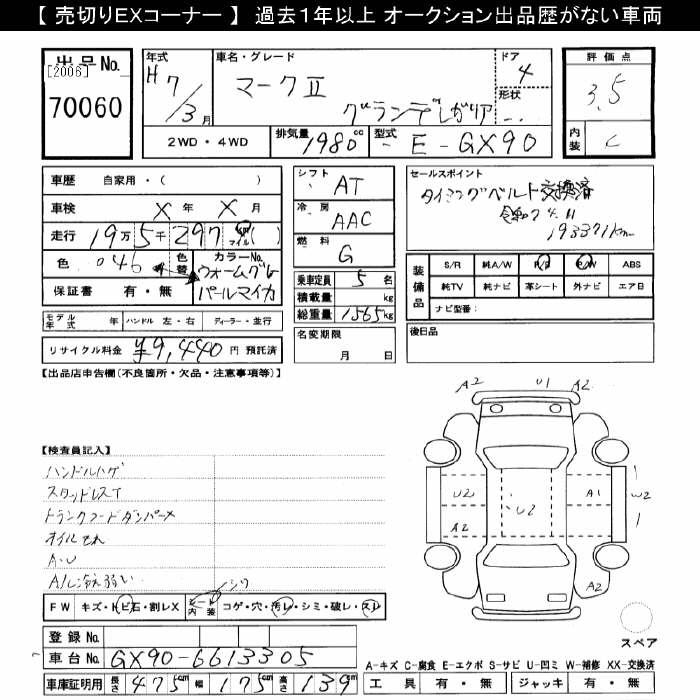 【 売切りEXコーナー 】 過去1年以上 オークション出品歴がない車両
出品No.
[2006]
70060
年式
H7/3月
車名・グレード
マークⅡ
グランデ レガリア
ドア
4
形状
評価点
3.5
内装
C
2WD・4WD
排気量 1980 cc
型式 E-GX90
車歴 自家用・( )
車検 X年 X月
走行 19万5千297 km マイル ( )
色 046
色替
カラーNo.
ウォームグレーパールマイカ
保証書 有・無
モデル年式 年 ハンドル 左・右 ディーラー・並行
リサイクル料金 ¥9,440 円 預託済
シフト AT
冷房 AAC
燃料 G
乗車定員 5 名
積載量 kg
総重量 1565 kg
名変期限
月 日
セールスポイント
タイミングベルト交換済
193371km
装備品
S/R 純A/W P/S P/W ABS
純TV 純ナビ 革シート 外ナビ エアB
ナビ型番:
後日品
【出品店申告欄(不良箇所・欠品・注意事項等)】
【検査員記入】
ハンドルハゲ
スタッドレスT
トランクフードダンパーX
オイルモレ
A・U
シワ
FW キズ・トビ石・割レX
シート内装 コゲ・穴・汚レ・シミ・破レ・スレ
登録No.
車台No. GX90-6613305
車庫証明用 長さ 475cm 幅 175cm 高さ 139cm
A2 U1 A2
U2 A1 U2
U2
A2
A2
スペア
A-キズ C-腐食 E-エクボ S-サビ U-凹ミ W-補修 XX-交換済
工具 有・無 ジャッキ 有・無